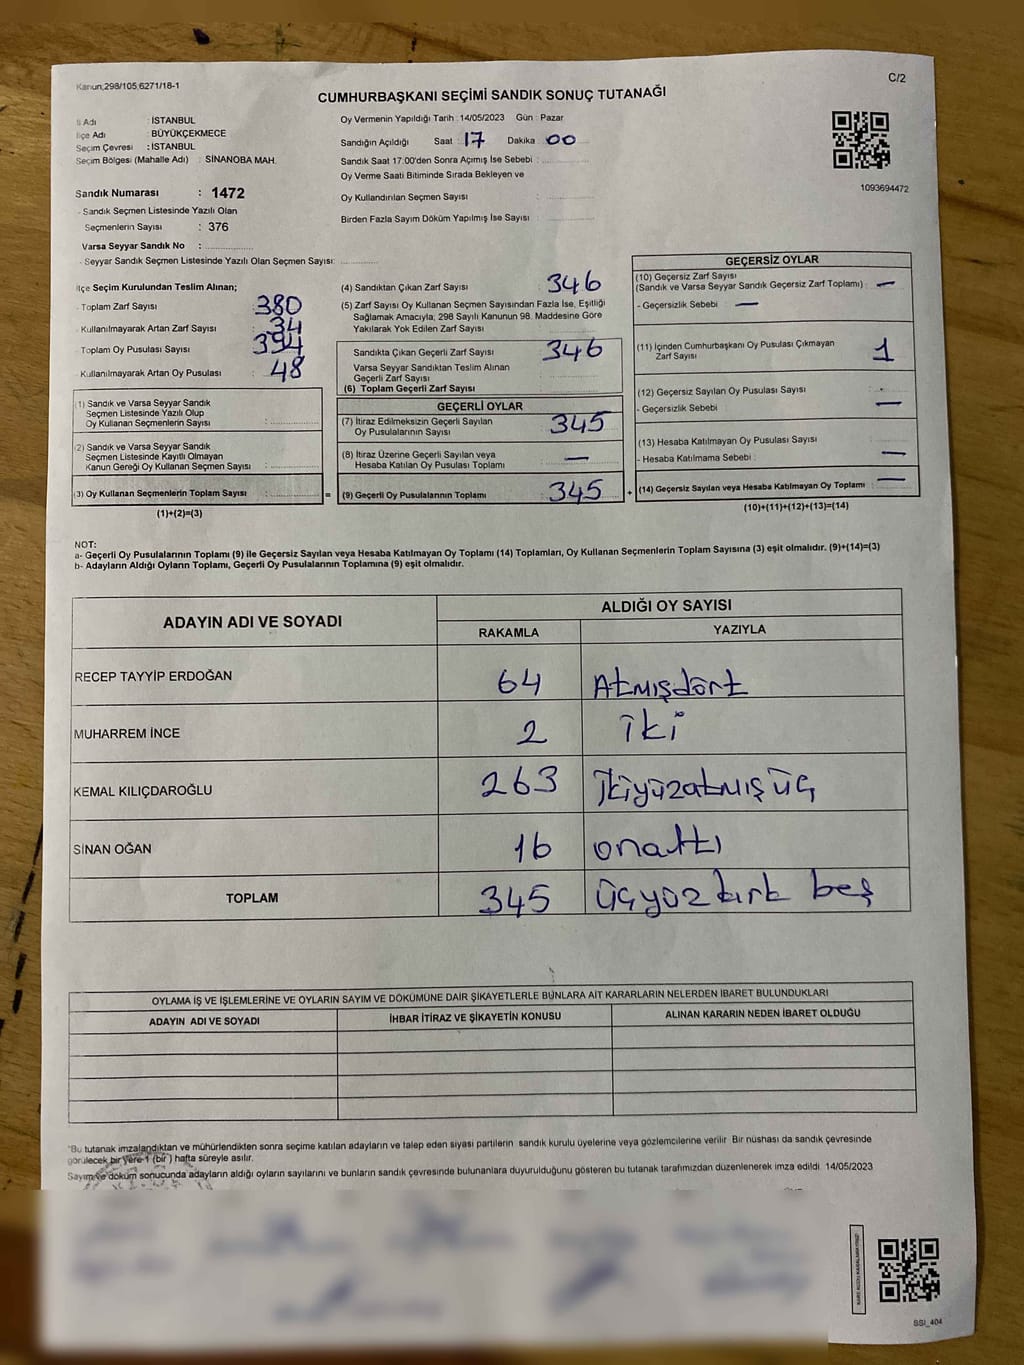 Kanun;298/105;6271/18-1
C/2
CUMHURBAŞKANI SEÇİMİ SANDIK SONUÇ TUTANAĞI
İl Adı : İSTANBUL
İlçe Adı : BÜYÜKÇEKMECE
Seçim Çevresi : İSTANBUL
Seçim Bölgesi (Mahalle Adı) : SİNANOBA MAH.
Sandık Numarası : 1472
- Sandık Seçmen Listesinde Yazılı Olan
Seçmenlerin Sayısı : 376
Varsa Seyyar Sandık No :
- Seyyar Sandık Seçmen Listesinde Yazılı Olan Seçmen Sayısı:
Oy Vermenin Yapıldığı Tarih : 14/05/2023 Gün : Pazar
Sandığın Açıldığı Saat : 17 Dakika : 00
Sandık Saat 17:00'den Sonra Açımış İse Sebebi :
Oy Verme Saati Bitiminde Sırada Bekleyen ve
Oy Kullandırılan Seçmen Sayısı :
Birden Fazla Sayım Döküm Yapılmış İse Sayısı :
1093694472
İlçe Seçim Kurulundan Teslim Alınan;
- Toplam Zarf Sayısı : 380
- Kullanılmayarak Artan Zarf Sayısı : 34
- Toplam Oy Pusulası Sayısı : 394
- Kullanılmayarak Artan Oy Pusulası : 48
(1) Sandık ve Varsa Seyyar Sandık
Seçmen Listesinde Yazılı Olup
Oy Kullanan Seçmenlerin Sayısı :
(2) Sandık ve Varsa Seyyar Sandık
Seçmen Listesinde Kayıtlı Olmayan
Kanun Gereği Oy Kullanan Seçmen Sayısı :
(3) Oy Kullanan Seçmenlerin Toplam Sayısı : =
(1)+(2)=(3)
(4) Sandıktan Çıkan Zarf Sayısı : 346
(5) Zarf Sayısı Oy Kullanan Seçmen Sayısından Fazla İse, Eşitliği
Sağlamak Amacıyla; 298 Sayılı Kanunun 98. Maddesine Göre
Yakılarak Yok Edilen Zarf Sayısı :
Sandıkta Çıkan Geçerli Zarf Sayısı : 346
Varsa Seyyar Sandıktan Teslim Alınan
Geçerli Zarf Sayısı :
(6) Toplam Geçerli Zarf Sayısı :
GEÇERLİ OYLAR
(7) İtiraz Edilmeksizin Geçerli Sayılan
Oy Pusulalarının Sayısı : 345
(8) İtiraz Üzerine Geçerli Sayılan veya
Hesaba Katılan Oy Pusulası Toplamı : —
(9) Geçerli Oy Pusulalarının Toplamı : 345 +
GEÇERSİZ OYLAR
(10) Geçersiz Zarf Sayısı
(Sandık ve Varsa Seyyar Sandık Geçersiz Zarf Toplamı) : —
- Geçersizlik Sebebi : —
(11) İçinden Cumhurbaşkanı Oy Pusulası Çıkmayan
Zarf Sayısı : 1
(12) Geçersiz Sayılan Oy Pusulası Sayısı :
- Geçersizlik Sebebi : —
(13) Hesaba Katılmayan Oy Pusulası Sayısı :
- Hesaba Katılmama Sebebi : —
(14) Geçersiz Sayılan veya Hesaba Katılmayan Oy Toplamı : —
(10)+(11)+(12)+(13)=(14)
NOT:
a- Geçerli Oy Pusulalarının Toplamı (9) ile Geçersiz Sayılan veya Hesaba Katılmayan Oy Toplamı (14) Toplamları, Oy Kullanan Seçmenlerin Toplam Sayısına (3) eşit olmalıdır. (9)+(14)=(3)
b- Adayların Aldığı Oyların Toplamı, Geçerli Oy Pusulalarının Toplamına (9) eşit olmalıdır.
ADAYIN ADI VE SOYADI
ALDIĞI OY SAYISI
RAKAMLA YAZIYLA
RECEP TAYYİP ERDOĞAN 64 Atmışdört
MUHARREM İNCE 2 iki
KEMAL KILIÇDAROĞLU 263 İkiyüzatmışüç
SİNAN OĞAN 16 onaltı
TOPLAM 345 üçyüzkırk beş
OYLAMA İŞ VE İŞLEMLERİNE VE OYLARIN SAYIM VE DÖKÜMÜNE DAİR ŞİKAYETLERLE BUNLARA AİT KARARLARIN NELERDEN İBARET BULUNDUKLARI
ADAYIN ADI VE SOYADI İHBAR İTİRAZ VE ŞİKAYETİN KONUSU ALINAN KARARIN NEDEN İBARET OLDUĞU
"Bu tutanak imzalandıktan ve mühürlendikten sonra seçime katılan adayların ve talep eden siyasi partilerin sandık kurulu üyelerine veya gözlemcilerine verilir. Bir nüshası da sandık çevresinde
görülecek bir yere 1 (bir ) hafta süreyle asılır.
Sayım ve döküm sonucunda adayların aldığı oyların sayılarını ve bunların sandık çevresinde bulunanlara duyurulduğunu gösteren bu tutanak tarafımızdan düzenlenerek imza edildi. 14/05/2023
KARE KODU KARALAMAYINIZ!
SSI_404